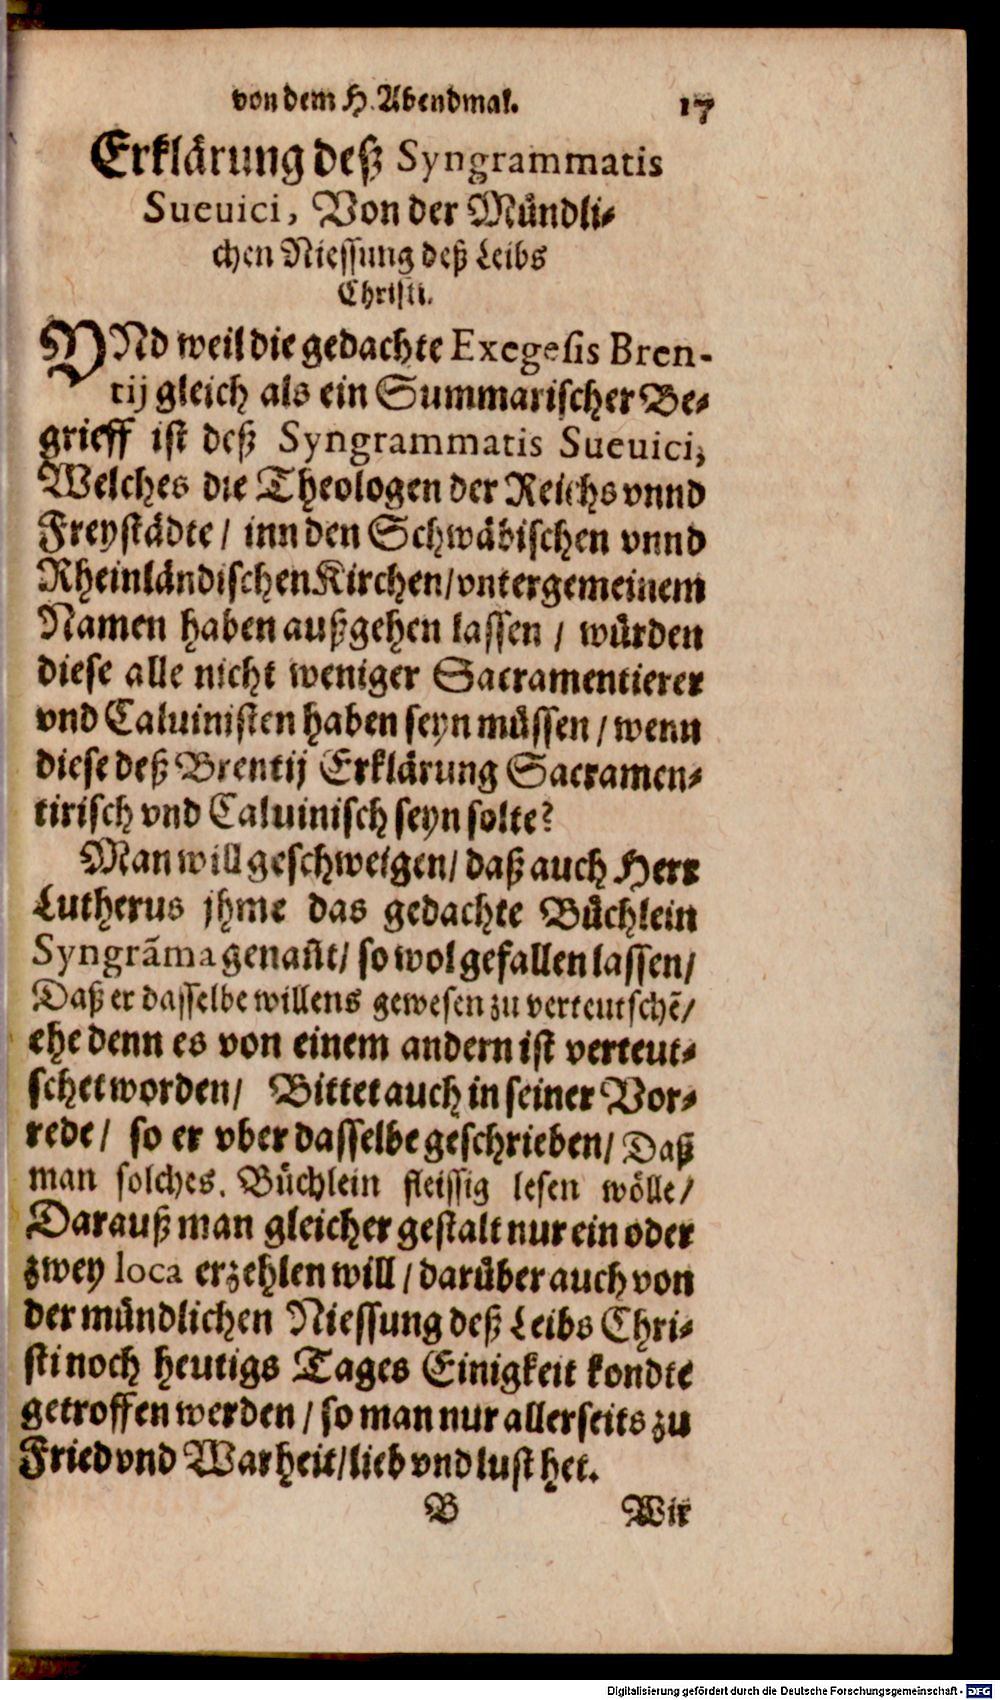 von dem H. Abendmal. 17
Erklärung deß Syngrammatis
Sueuici, Von der Mündli⸗
chen Niessung deß Leibs
Christi.
VNd weil die gedachte Exegesis Bren-
tij gleich als ein Summarischer Be⸗
grieff ist deß Syngrammatis Sueuici,
Welches die Theologen der Reichs vnnd
Freystädte / inn den Schwäbischen vnnd
Rheinländischen Kirchen / vnter gemeinem
Namen haben außgehen lassen / würden
diese alle nicht weniger Sacramentierer
vnd Caluinisten haben seyn müssen / wenn
diese deß Brentij Erklärung Sacramen⸗
tirisch vnd Caluinisch seyn solte?
Man will geschweigen / daß auch Herr
Lutherus jhme das gedachte Büchlein
Syngrãma genañt / so wol gefallen lassen /
Daß er dasselbe willens gewesen zu verteutschẽ /
ehe denn es von einem andern ist verteut⸗
schet worden / Bittet auch in seiner Vor⸗
rede / so er vber dasselbe geschrieben / Daß
man solches. Büchlein fleissig lesen wölle /
Darauß man gleicher gestalt nur ein oder
zwey loca erzehlen will / darüber auch von
der mündlichen Niessung deß Leibs Chri⸗
sti noch heutigs Tages Einigkeit kondte
getroffen werden / so man nur allerseits zu
Fried vnd Warheit / lieb vnd lust het.
B Wir
Digitalisierung gefördert durch die Deutsche Forschungsgemeinschaft - DFG